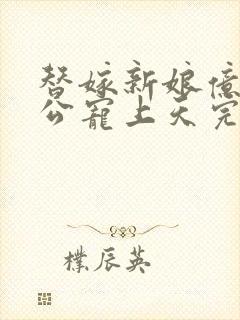 替嫁新娘億
公寵上天完
樸辰英